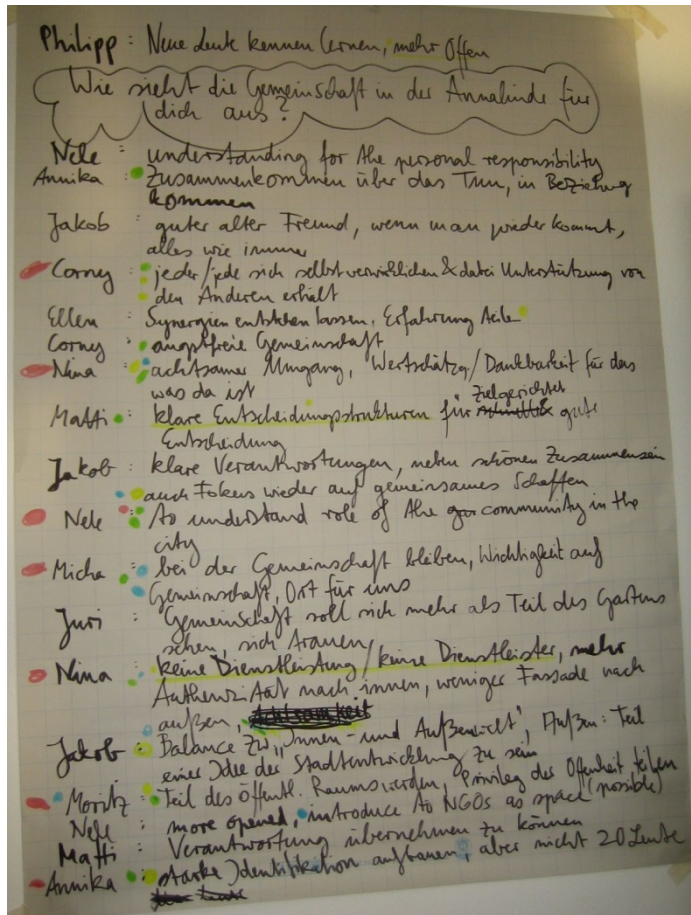 Philipp : Neue Leute kennen lernen, mehr Offen
Wie sieht die Gemeinschaft in der Annalinde für
dich aus?
Nele : understanding for the personal responsibility
Annika : Zusammenkommen über das Tun, in Beziehung
kommen
Jakob : guter alter Freund, wenn man wieder kommt,
alles wie immer
Corney : jeder/jede sich selbstverwirklichen & dabei Unterstützung von
den Anderen erhält
Ellen : Synergien entstehen lassen, Erfahrung teile
Corney : angstfreie Gemeinschaft
Nina : achtsamer Umgang, Wertschätzg/Dankbarkeit für das
was da ist
zielgerichtet
Matti : klare Entscheidungsstrukturen für gute
Entscheidung
Jakob : klare Verantwortungen, neben schönen Zusammensein
auch Fokus wieder auf gemeinsames Schaffen
Nele : to understand role of the community in the
city
Micha : bei der Gemeinschaft bleiben, Wichtigkeit auf
Gemeinschaft, Ort für uns
Juri : Gemeinschaft soll sich mehr als Teil des Gartens
sehen, sich trauen
Nina : keine Dienstleistung/keine Dienstleister, mehr
Authenzität nach innen, weniger Fassade nach
außen,
Jakob : Balance zw. "Innen- und Außensicht", Außen: Teil
einer Idee der Stadtentwicklung zu sein
Moritz : Teil des öffentl. Raums werden, Privileg der Offenheit teilen
Nele : more opened, introduce to NGOs as space (possible)
Matti : Verantwortung übernehmen zu können
Annika : starke Identifikation aufbauen, aber nicht 20 Leute